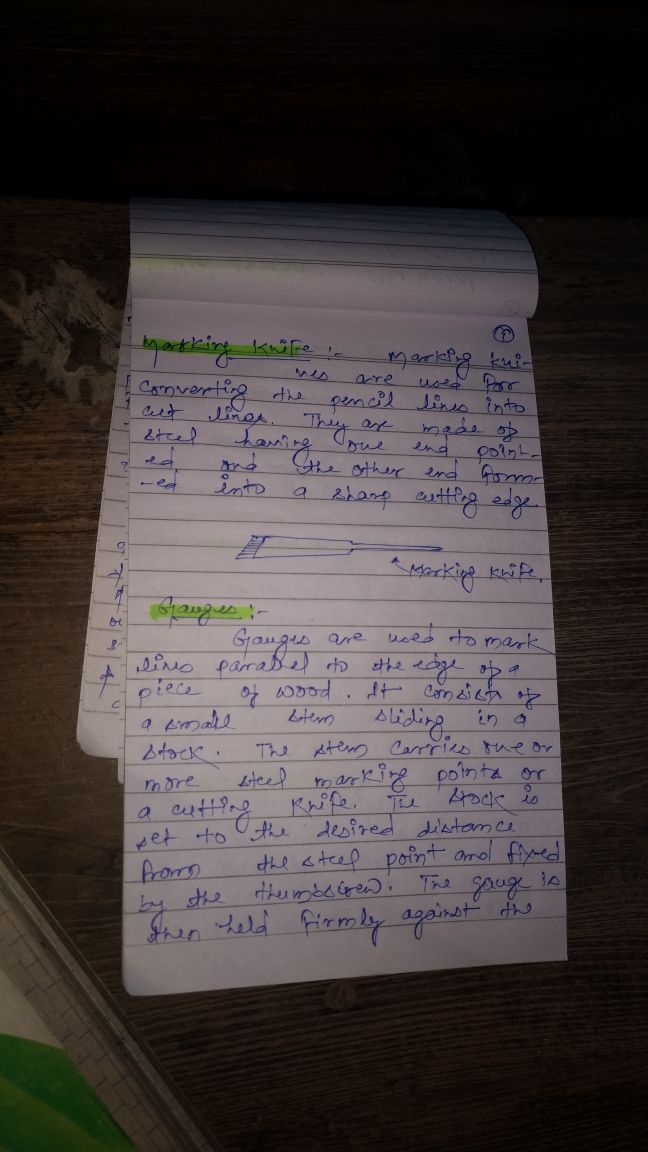 Marking Knife :- Marking kni-
ves are used for
converting the pencil lines into
cut lines. They are made of
steel having one end point-
ed and the other end form-
-ed into a sharp cutting edge
Marking knife.
Gauges :-
Gauges are used to mark
lines parallel to the edge of a
piece of wood. It consists of
a small stem sliding in a
stock. The stem carries one or
more steel marking points or
a cutting knife. The stock is
set to the desired distance
from the steel point and fixed
by the thumbscrew. The gauge is
then held firmly against the